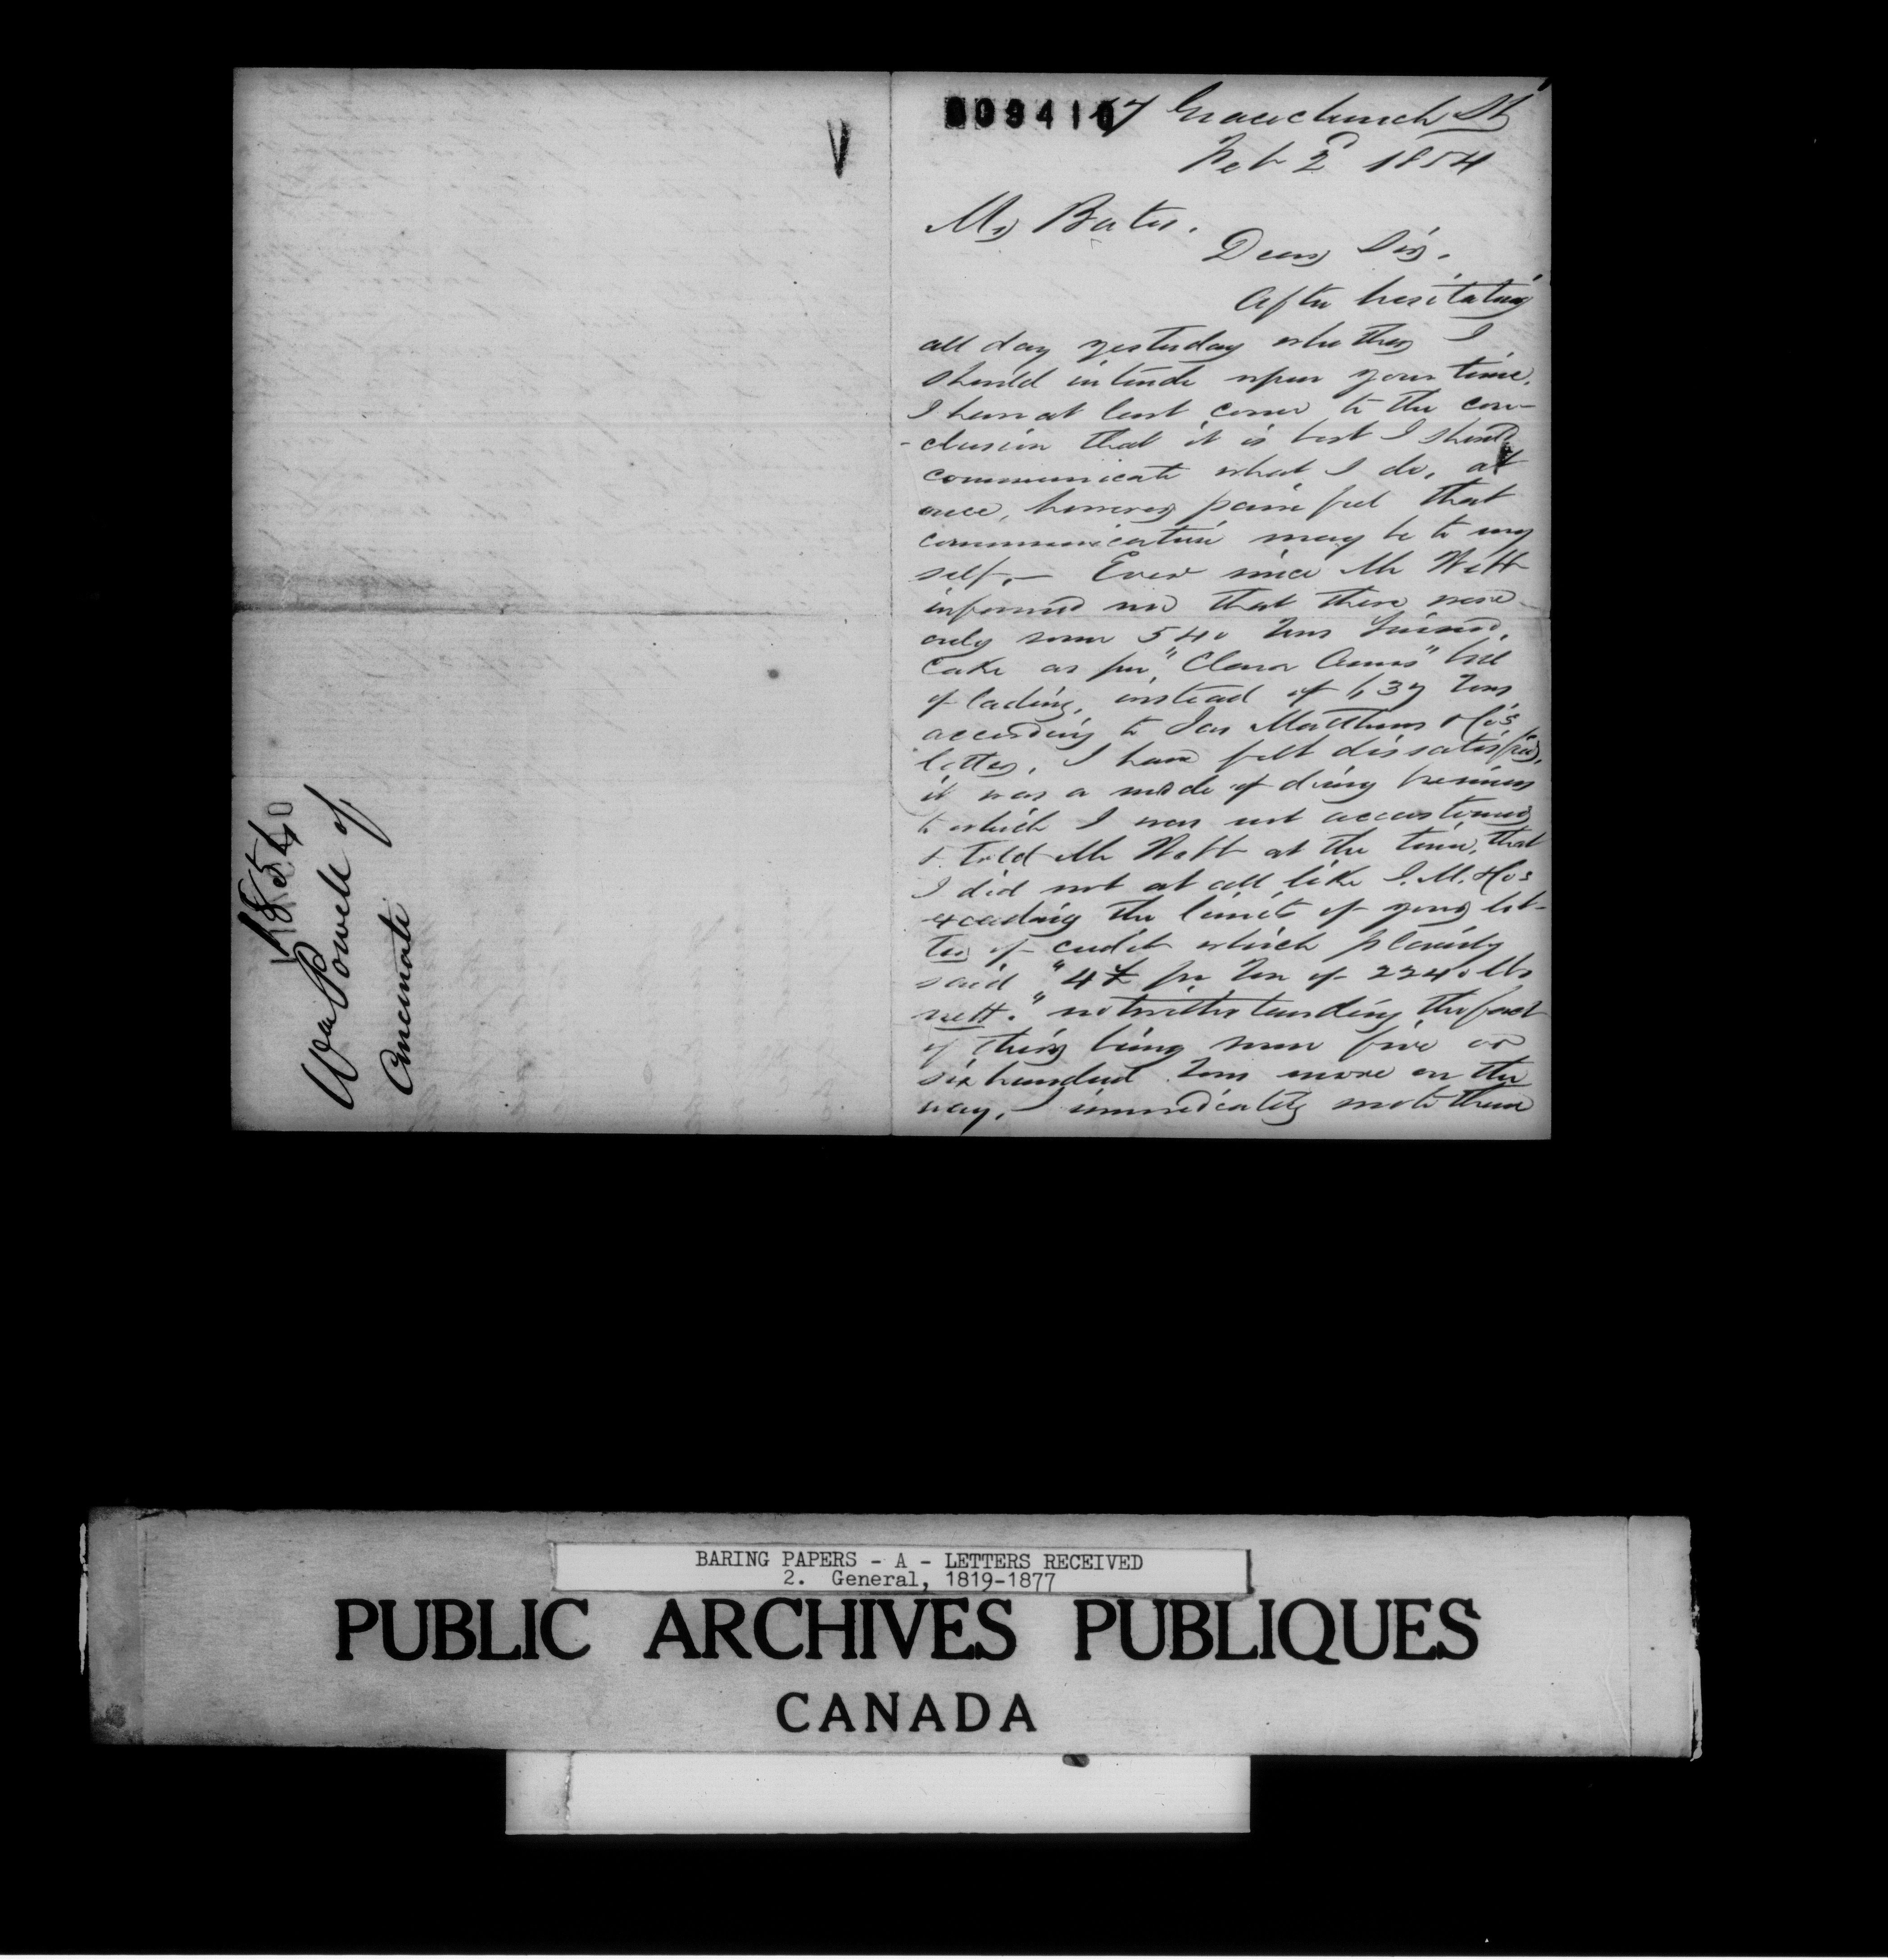 009410
17 Gracechurch St
Feb 2d 1854
Mr Bates.
Dear Sir.
After hesitating
all day yesterday whether I
should intrude upon your time,
I have at last come to the con-
-clusion that it is best I should
communicate what I do, at
once, however painful that
communication may be to my
self. — Ever since Mr
informed me that there were
only some 540 Tons Linseed
Cake as per "Clara Ann" bill
of lading, instead of 637 Tons
according to Jas Matthews & Co's
letter, I have felt dissatisfied,
it was a mode of doing business
to which I was not accustomed
& told Mr at the time, that
I did not at all like J. M. & Co's
exceeding the limits of your let-
ter of credit which plainly
said "4£ per Ton of 2240 lbs
nett." notwithstanding the fact
of their being some five or
six hundred Tons more on the
way, I immediately wrote them
1854
Wm Powell
Cincinnati
BARING PAPERS - A - LETTERS RECEIVED
2. General, 1819-1877
PUBLIC ARCHIVES PUBLIQUES
CANADA